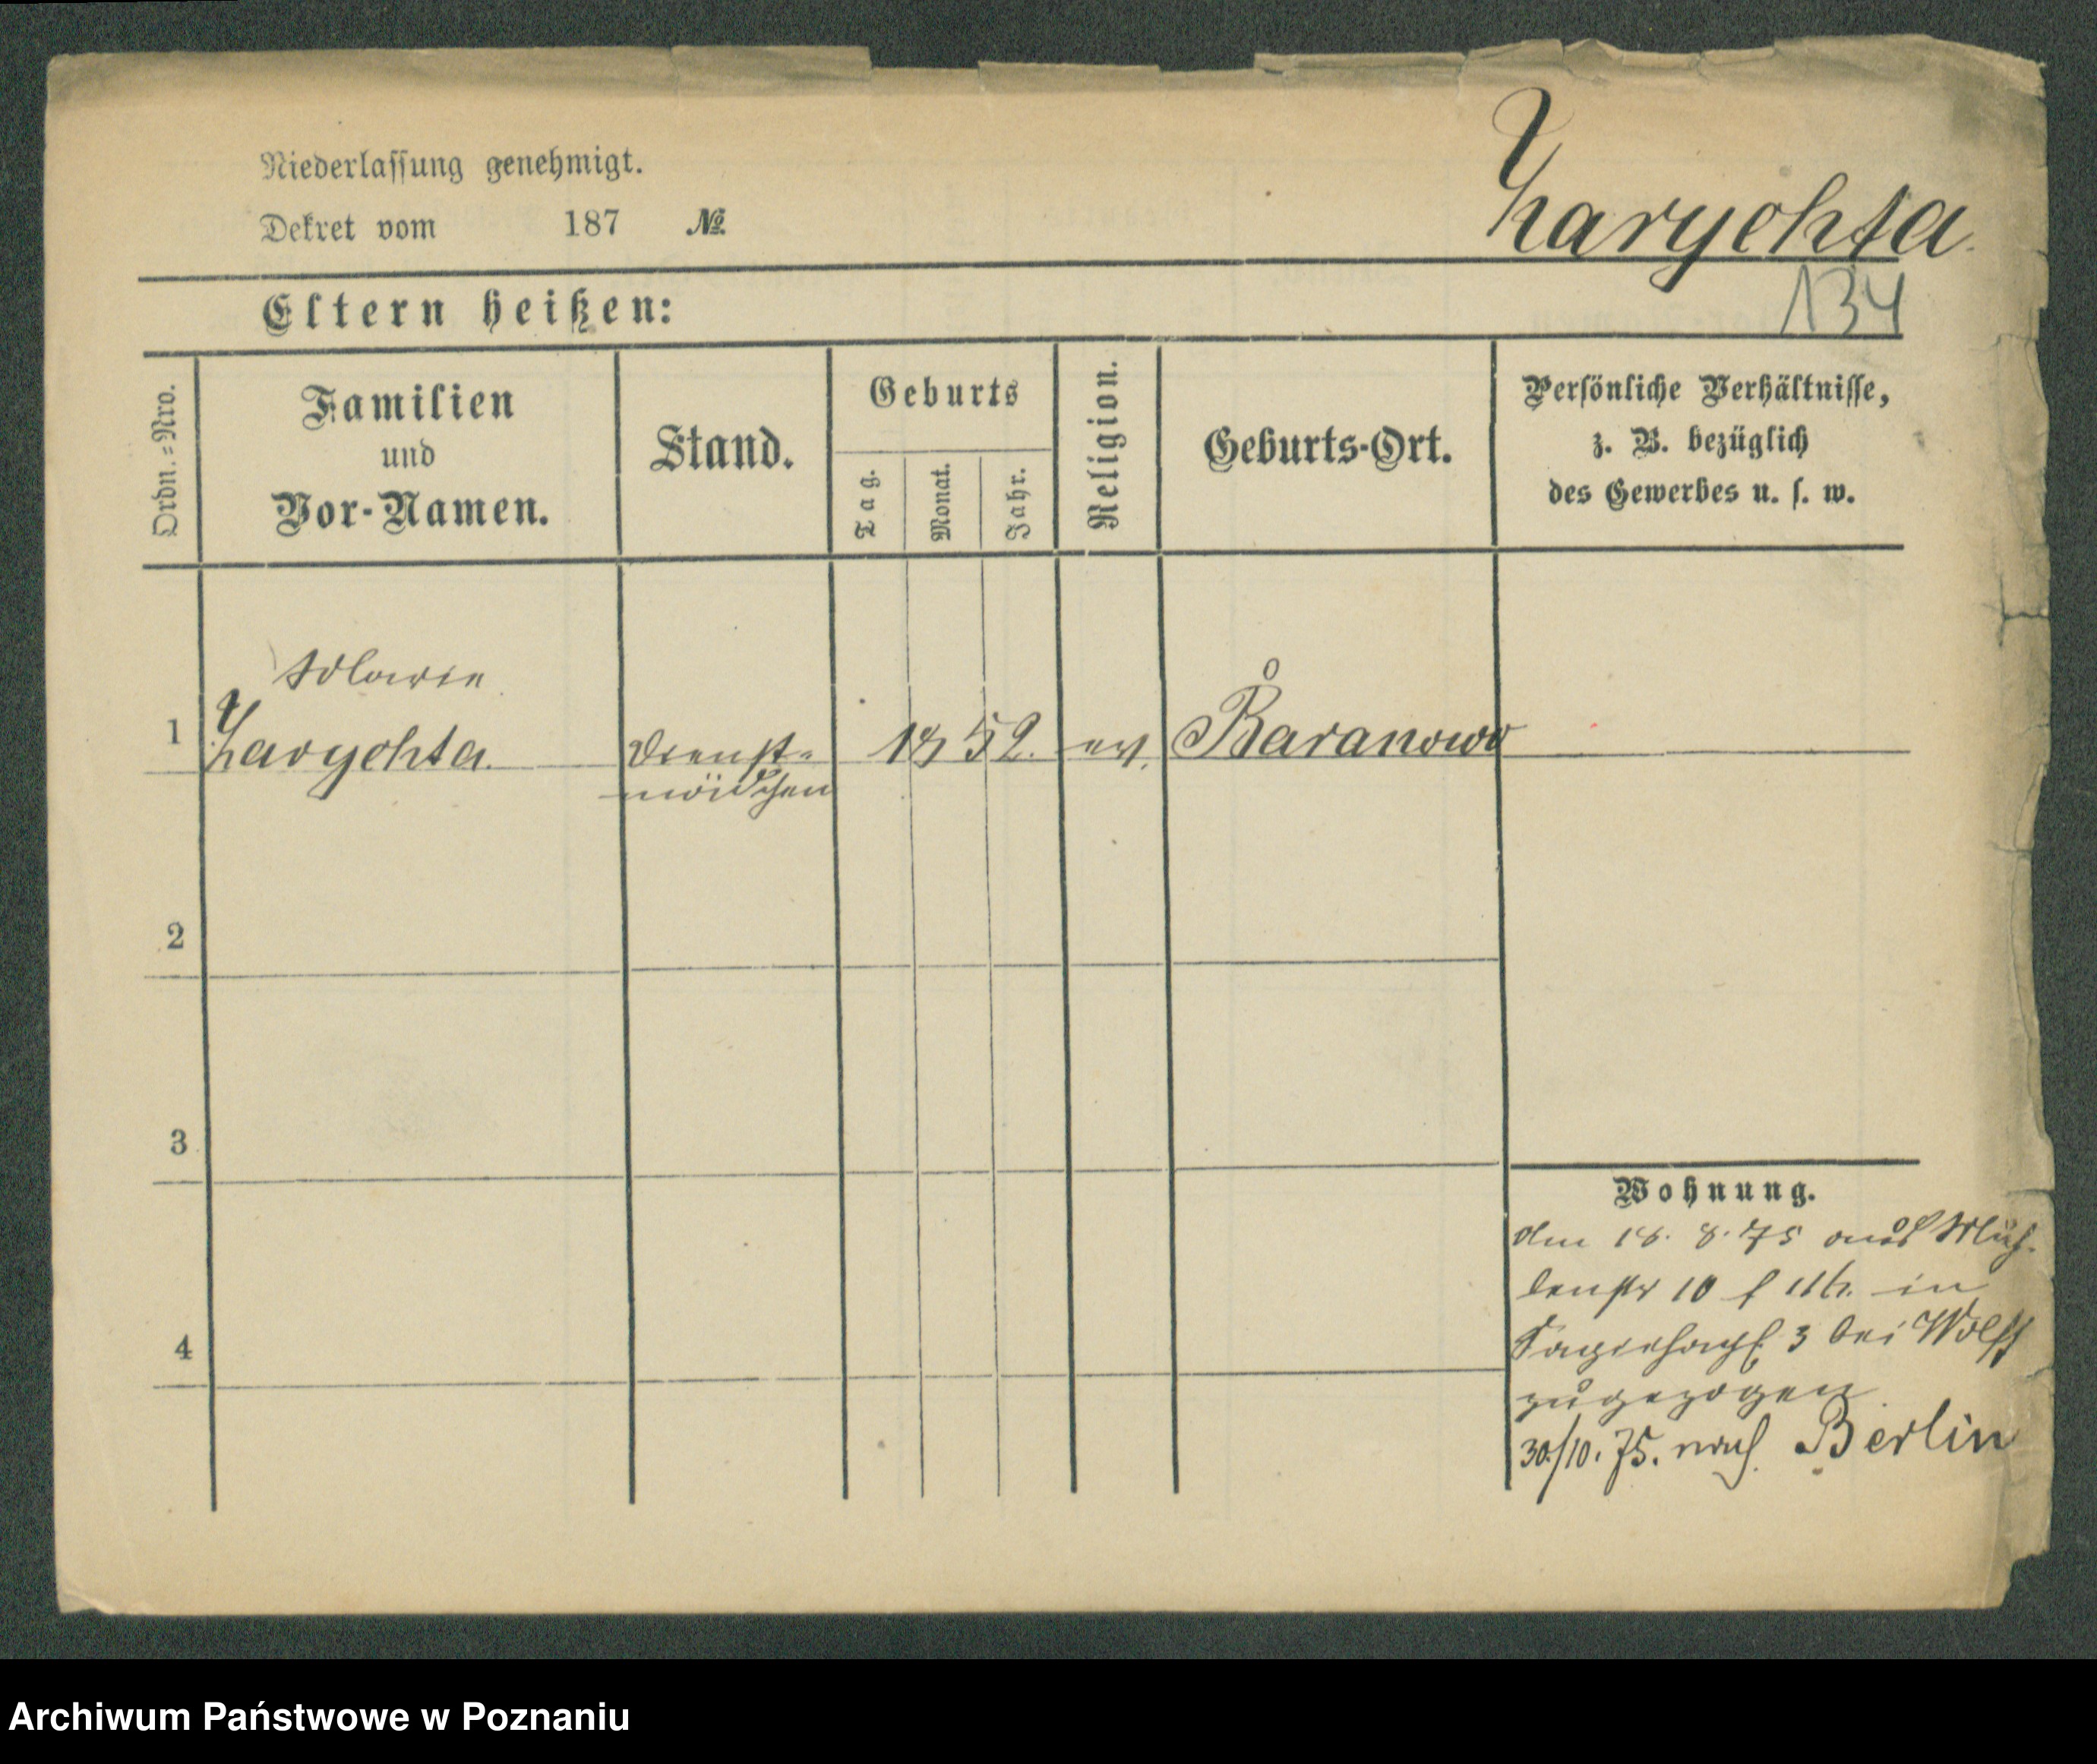 Niederlassung genehmigt.
Dekret vom 187 №
Zarychta.
134
Eltern heißen:
Ordn.-Nro.
Familien
und
Vor-Namen.
Stand.
Geburts
Tag.
Monat.
Jahr.
Religion.
Geburts-Ort.
Persönliche Verhältnisse,
z. B. bezüglich
des Gewerbes u. s. w.
Marie
1 Zarychta. Dienst- 18 52. ev. Baranowo
mädchen
2
3
4
Wohnung.
8. 75 aus Müh-
lenstr 10 in
3 bei Wolff
zugezogen
30/10. 75. nach Berlin
Archiwum Państwowe w Poznaniu